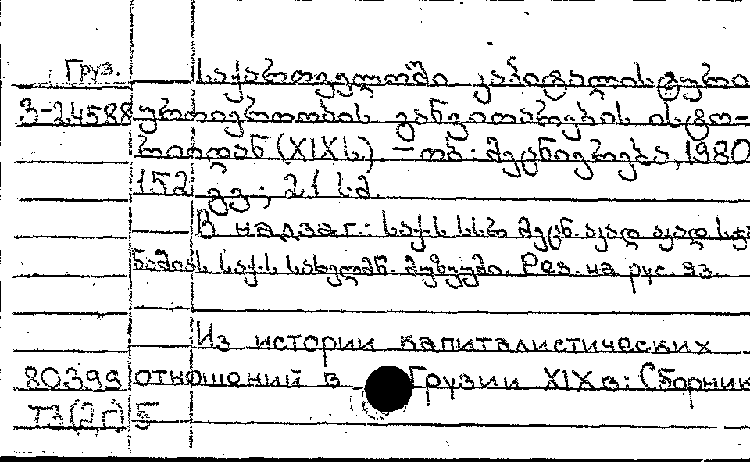 Груз. საქართველოში კაპიტალისტური
3-24588 ურთიერთობის განვითარების ისტო-
რიიდან (XIX ს.). – თბ.: მეცნიერება, 1980
152 გვ.; 21 სმ.
В надзаг.: საქ. სსრ მეცნ. აკად აკად ს. ჯა
ნაშიას საქ. ს სახელმწ. მუზეუმი. Рез. на рус. яз.
Из истории капиталистических
80399 отношений в Грузии XIX в: Сборник
Т3(2Г)5